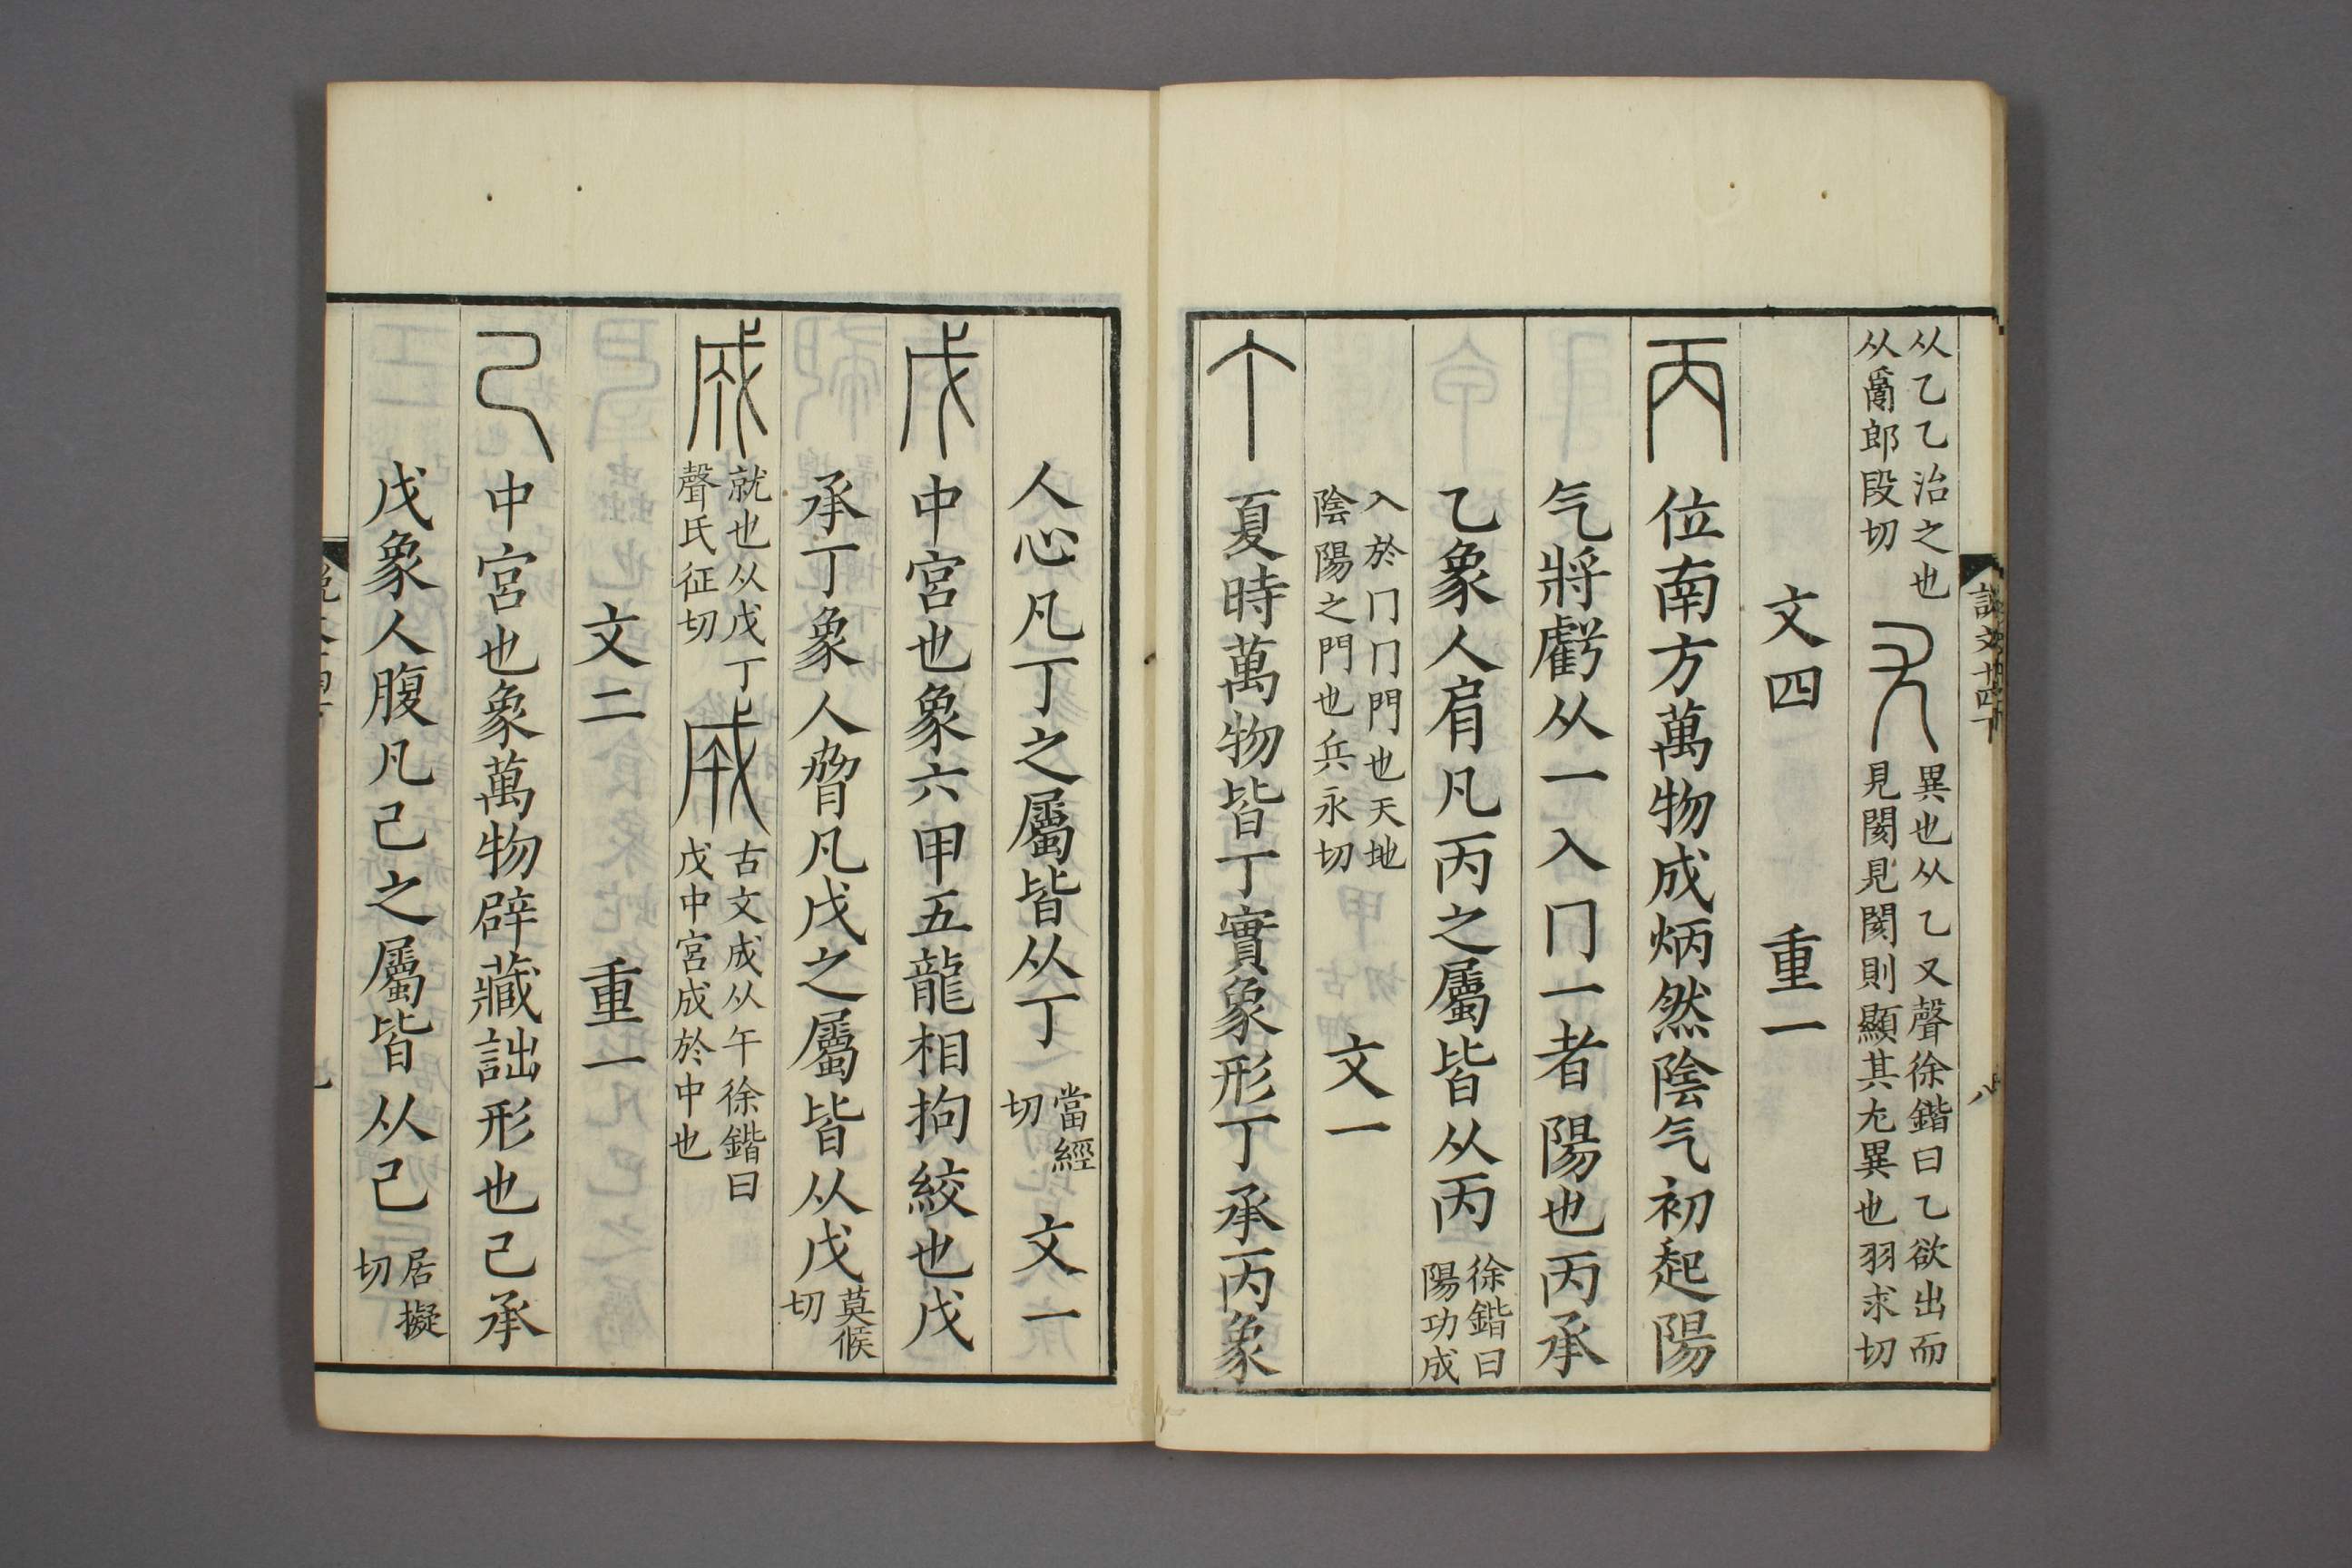 說文十四下
八
从乙乙治之也
从𤔔郎段切
尤
異也从乙又聲徐鍇曰乙欲出而
見閡見閡則顯其尤異也羽求切
文四 重一
丙 位南方萬物成炳然陰气初起陽
气將虧从一入冂一者陽也丙承
乙象人肩凡丙之屬皆从丙
徐鍇曰
陽功成
入於冂冂門也天地
陰陽之門也兵永切
文一
丁 夏時萬物皆丁實象形丁承丙象
人心凡丁之屬皆从丁
當經
切
文一
戊 中宮也象六甲五龍相拘絞也戊
承丁象人脅凡戊之屬皆从戊
莫候
切
成
就也从戊丁
聲氏征切
成
古文成从午徐鍇曰
戊中宮成於中也
文二 重一
己 中宮也象萬物辟藏詘形也己承
戊象人腹凡己之屬皆从己
居擬
切